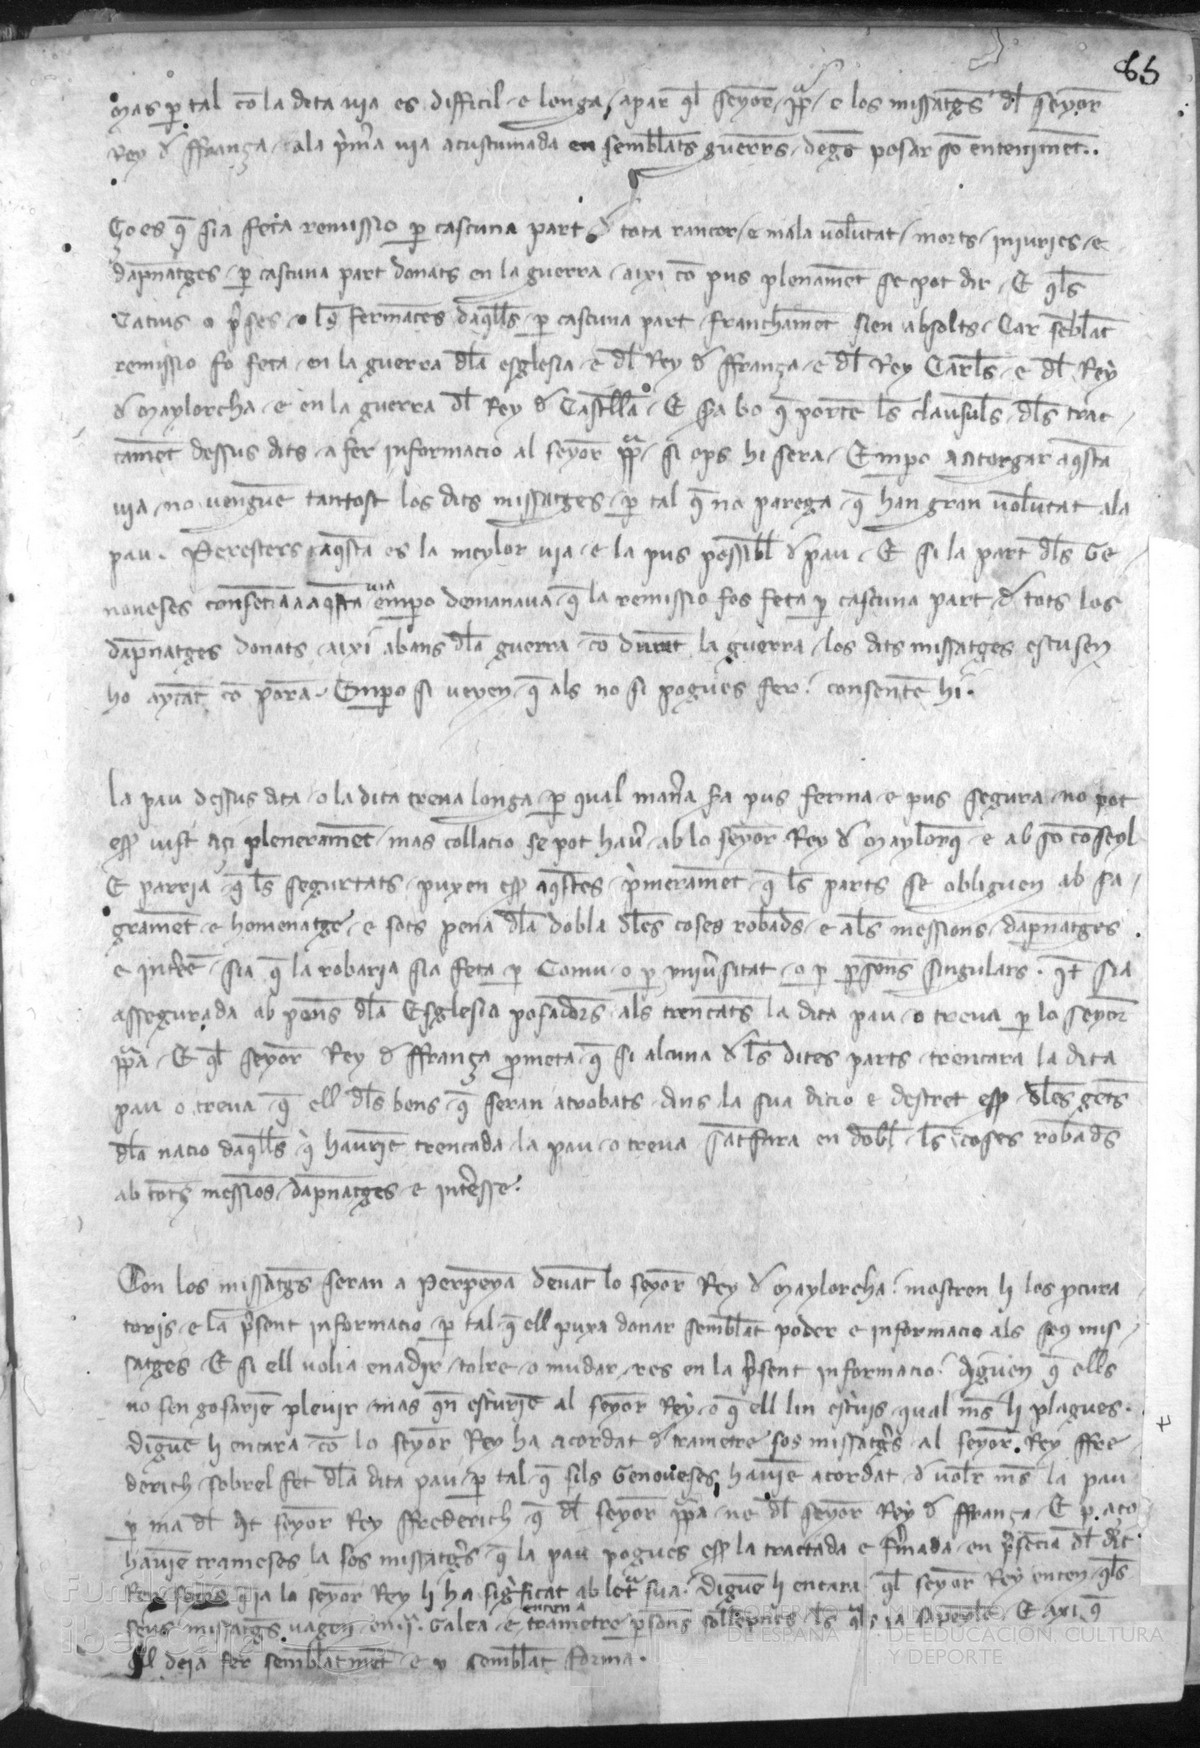 65
mas p tal cō la dcta via es difficil e longa, apar ql seyor ppa e los missatgs dl seyor
Rey d ffrança, a la pmra via acustumada en semblats guerrs, degs posar so entenimet..
Ço es q sia feta remissio p cascuna part d tota rancor, e mala volutat, morts, iniuries, e
dapnatges, p cascuna part donats en la guerra, aixi co pus plenamet se pot dir, E qls
Catius o pses, o ls fermaces daqlls, p cascuna part franchamet sien absolts, Car seblat
remissio fo feta, en la guerra dla esglesia, e dl Rey d ffrança, e dl Rey Carls, e dl Rey
d Maylorcha, e en la guerra dl Rey d Castella, E sra bo q porte ls clausuls, dls trac
tamet dessus dits, a fer informacio al seyor ppa, si ops hi sera, Empo atorgar aqsta
via, no vengue tantost los dits missatges, p tal q no parega, q han gran volutat ala
pau. Peresters aqsta es la meylor via, e la pus possibl d pau, E si la part dls Ge
noveses consetia a aqsta via empo demanava, q la remissio fos feta p cascuna part, d tots los
dapnatges donats, aixi abans dla guerra, co durat la guerra, los dits missatges escusen
ho aytat co pora, Empo si veyen, q als no si pogues fer, consente hi.
la pau dessus dita, o la dita treva longa, p qual manra sra pus ferma, e pus segura, no pot
ess vist aci plenerament, mas collacio se pot haver, ab lo seyor Rey d Maylorq, e ab so coseyl
E parria, q ls segurtats, puxen ess aqstes, pmeramet, q ls parts se obliguen ab sa
gramet, e homenatge, e sots pena dla dobla dles coses robads, e als messions, dapnatges
e intee, sia q la robaria sia feta p Comu, o p universitat, o p psons singulars. It sia
assegurada ab pens dla Esglesia posadors, als trencats la dita pau, o treva p lo seyor
ppa, E ql seyor Rey d ffrança pmeta, q si alcuna d ls dites parts, trencara la dita
pau o treva, q ell dls bens, q seran atrobats dins la sua dicio e destret ess dles gets
dla nacio daqlls, q haurie trencada la pau, o treva satsfara en dobl, ls coses robads
ab tots messios, dapnatges, e interesse.
Con los missatgs seran a Perpeya devat lo seyor Rey d Maylorcha, mostren li los pcura
toris, e la psent informacio, p tal q ell puxa donar semblat poder e informacio als seus mis
satges, E si ell volia enadir, tolre, o mudar, res en la psent informacio, diguen q ells
no sen gosarie plevir, mas qn escurie al seyor Rey, o q ell lin escuis, qual ms li plagues.
digue li encara, co lo seyor Rey ha acordat d trametre sos missatgrs al seyor Rey ffre
derich, sobrel fet dla dita pau, p tal q sils Genoveses, havie acordat, d volr ms la pau
p ma dl dit seyor Rey ffrederich, q dl seyor ppa, ne dl seyor Rey d ffrança, E p aço
havie trameses la sos missatgrs, q la pau pogues ess la tractada e frmada, en psecia dl dit
Rey, segos q ia lo seyor Rey li ha significat ab letra sua. digue li encara ql seyor Rey enten, qls
seus missatgs vagen en .I. Galea, e enten a trametre psons sollepnes ls qls ia sapeyle, E axi q
ell deia fer semblatmet, e p semblat forma.